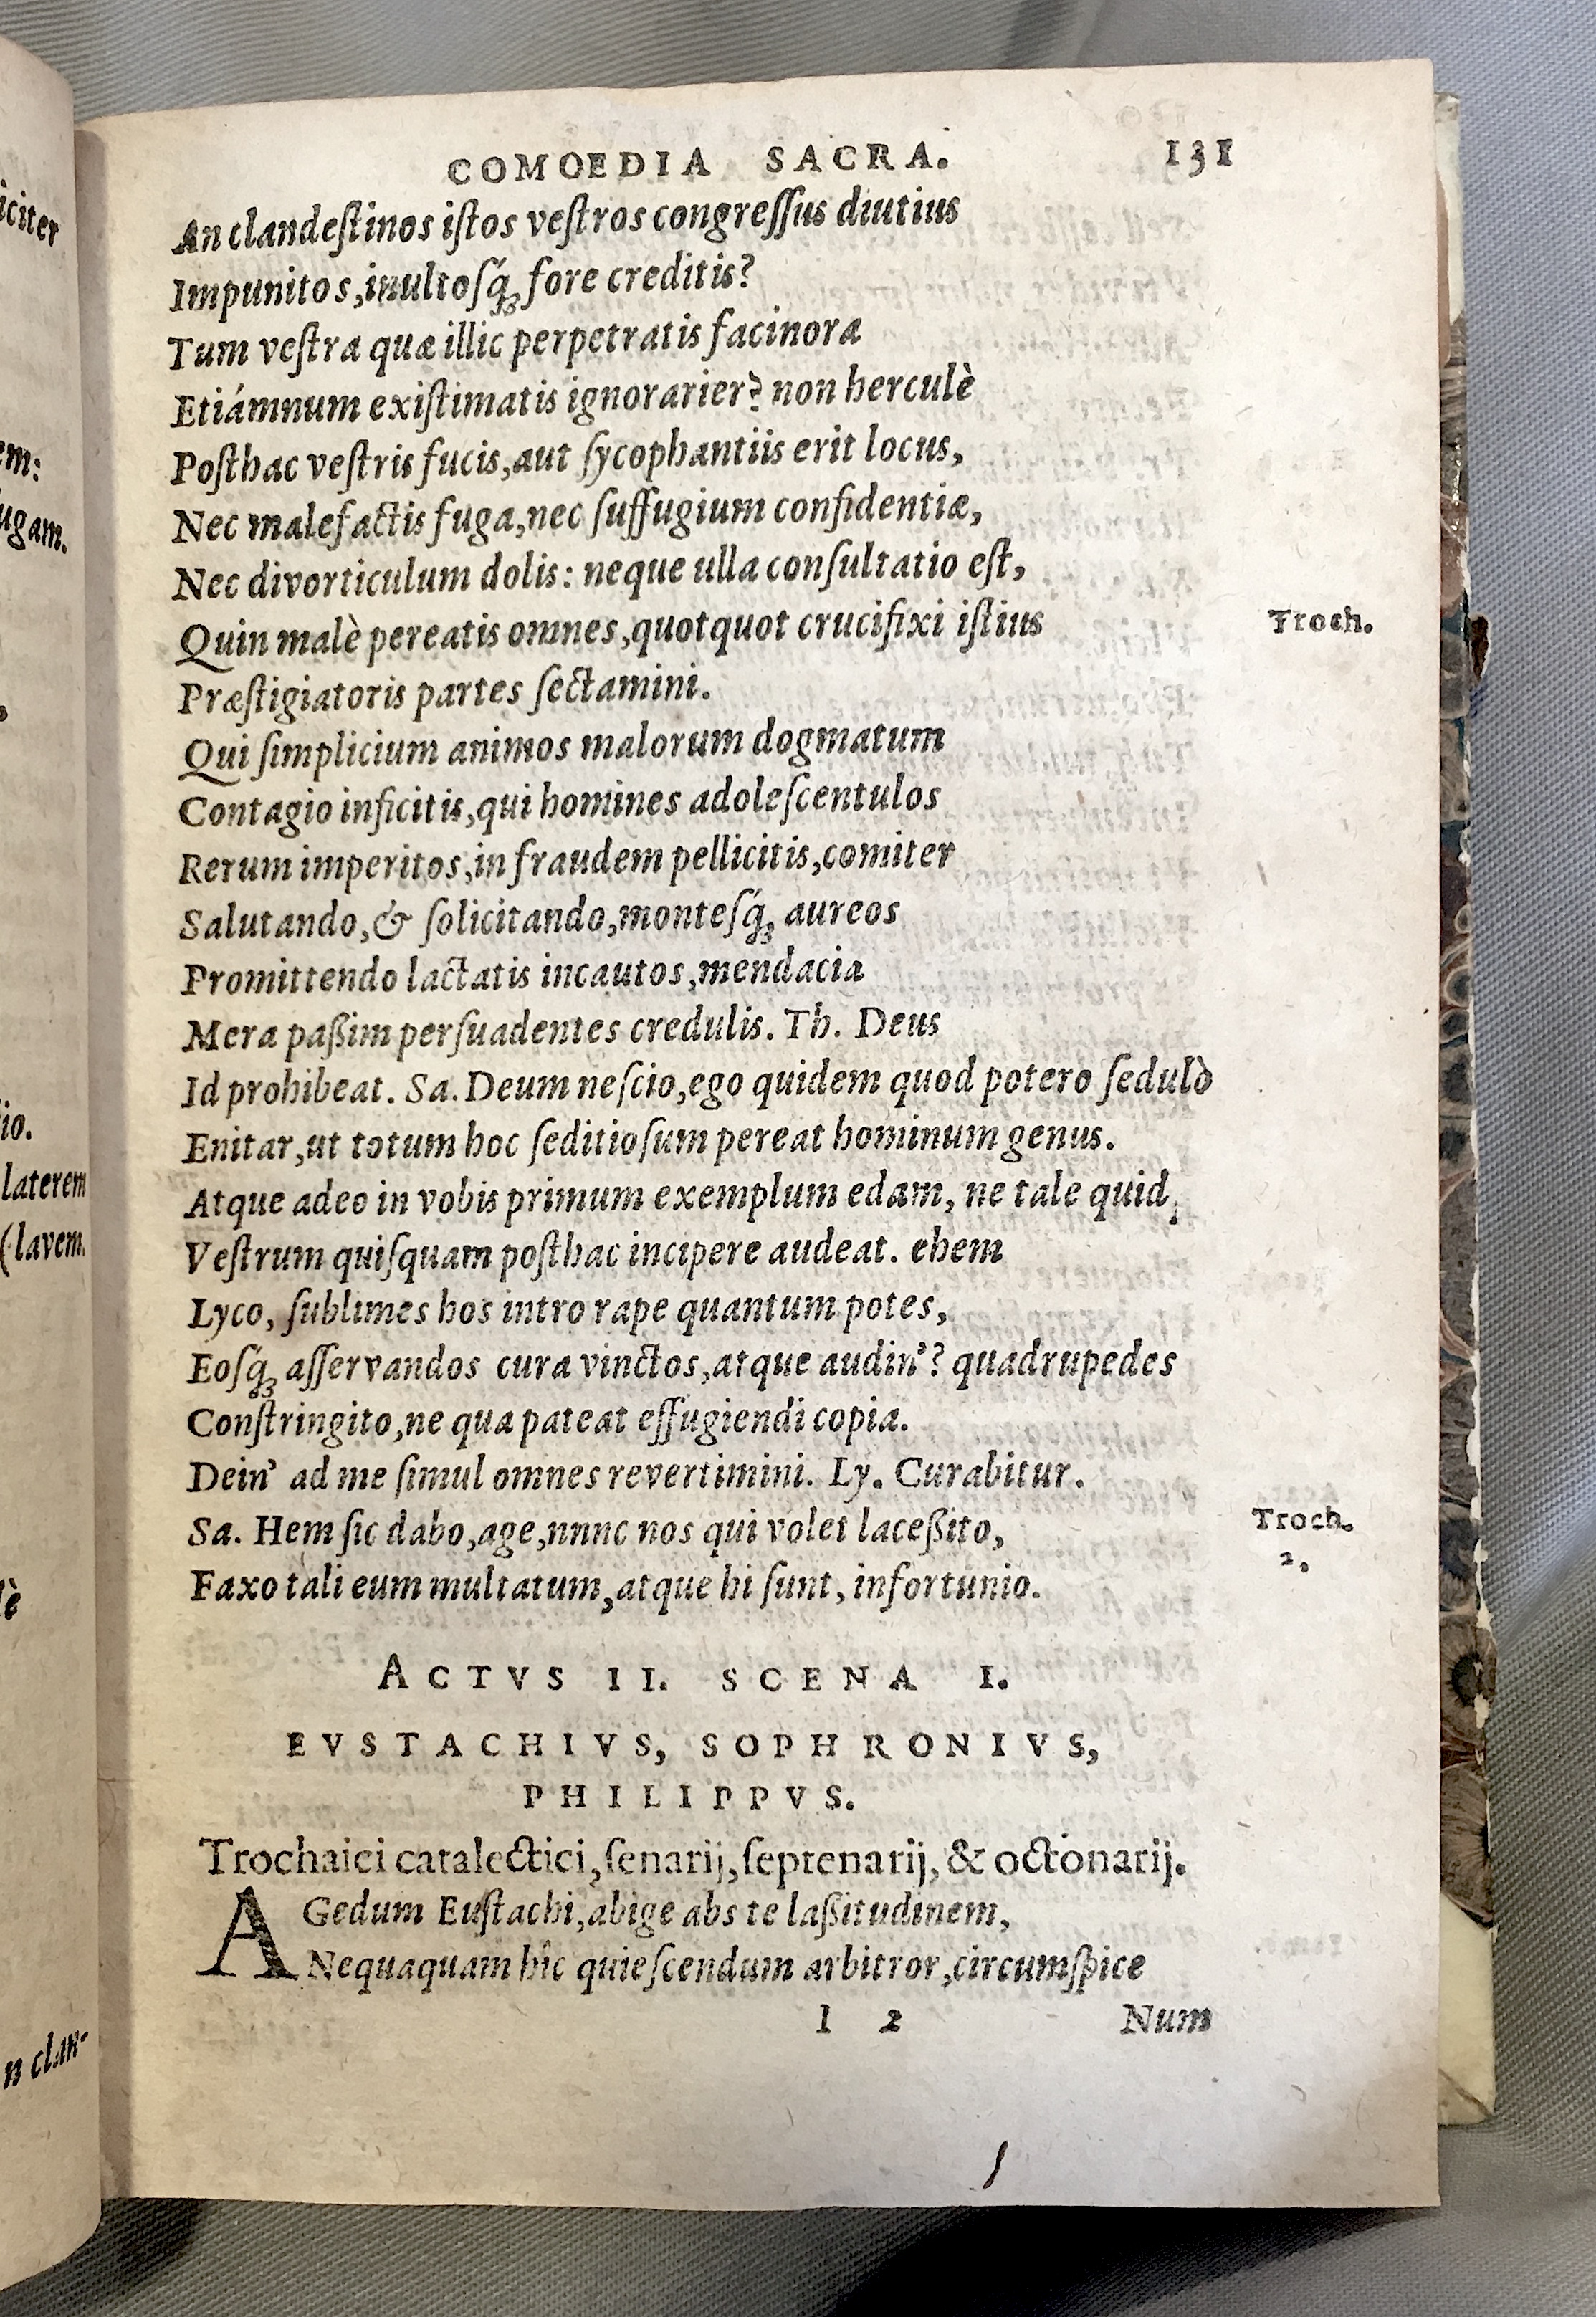 COMOEDIA SACRA. 131
An clandeſtinos iſtos veſtros congreſſus diutius
Impunitos, inultoſq́ꝫ fore creditis?
Tum veſtra quæ illic perpetratis facinora
Etiámnum exiſtimatis ignorarier? non herculè
Poſthac veſtris fucis, aut ſycophantiis erit locus,
Nec malefactis fuga, nec ſuffugium confidentiæ,
Nec divorticulum dolis: neque ulla conſultatio eſt,
Quin malè pereatis omnes, quotquot crucifixi iſtius Troch.
Præſtigiatoris partes ſectamini.
Qui ſimplicium animos malorum dogmatum
Contagio inficitis, qui homines adoleſcentulos
Rerum imperitos, in fraudem pellicitis, comiter
Salutando, & ſolicitando, monteſq́ꝫ aureos
Promittendo lactatis incautos, mendacia
Mera paßim perſuadentes credulis. Th. Deus
Id prohibeat. Sa. Deum neſcio, ego quidem quod potero ſedulò
Enitar, ut totum hoc ſeditioſum pereat hominum genus.
Atque adeo in vobis primum exemplum edam, ne tale quid,
Veſtrum quiſquam poſthac incipere audeat. ehem
Lyco, ſublimes hos intro rape quantum potes,
Eoſq́ꝫ aſſervandos cura vinctos, atque audin'? quadrupedes
Conſtringito, ne qua pateat effugiendi copia.
Dein' ad me ſimul omnes revertimini. Ly. Curabitur.
Sa. Hem ſic dabo, age, nnnc nos qui volet laceßito, Troch.
2.
Faxo tali eum multatum, atque hi ſunt, infortunio.
ACTVS II. SCENA I.
EVSTACHIVS, SOPHRONIVS,
PHILIPPVS.
Trochaici catalectici, ſenarij, ſeptenarij, & octonarij.
AGedum Euſtachi, abige abs te laßitudinem,
Nequaquam hîc quieſcendum arbitror, circumſpice
I 2 Num
iciter
em:
ugam.
io.
laterem
(lavem.
lè
n clan-